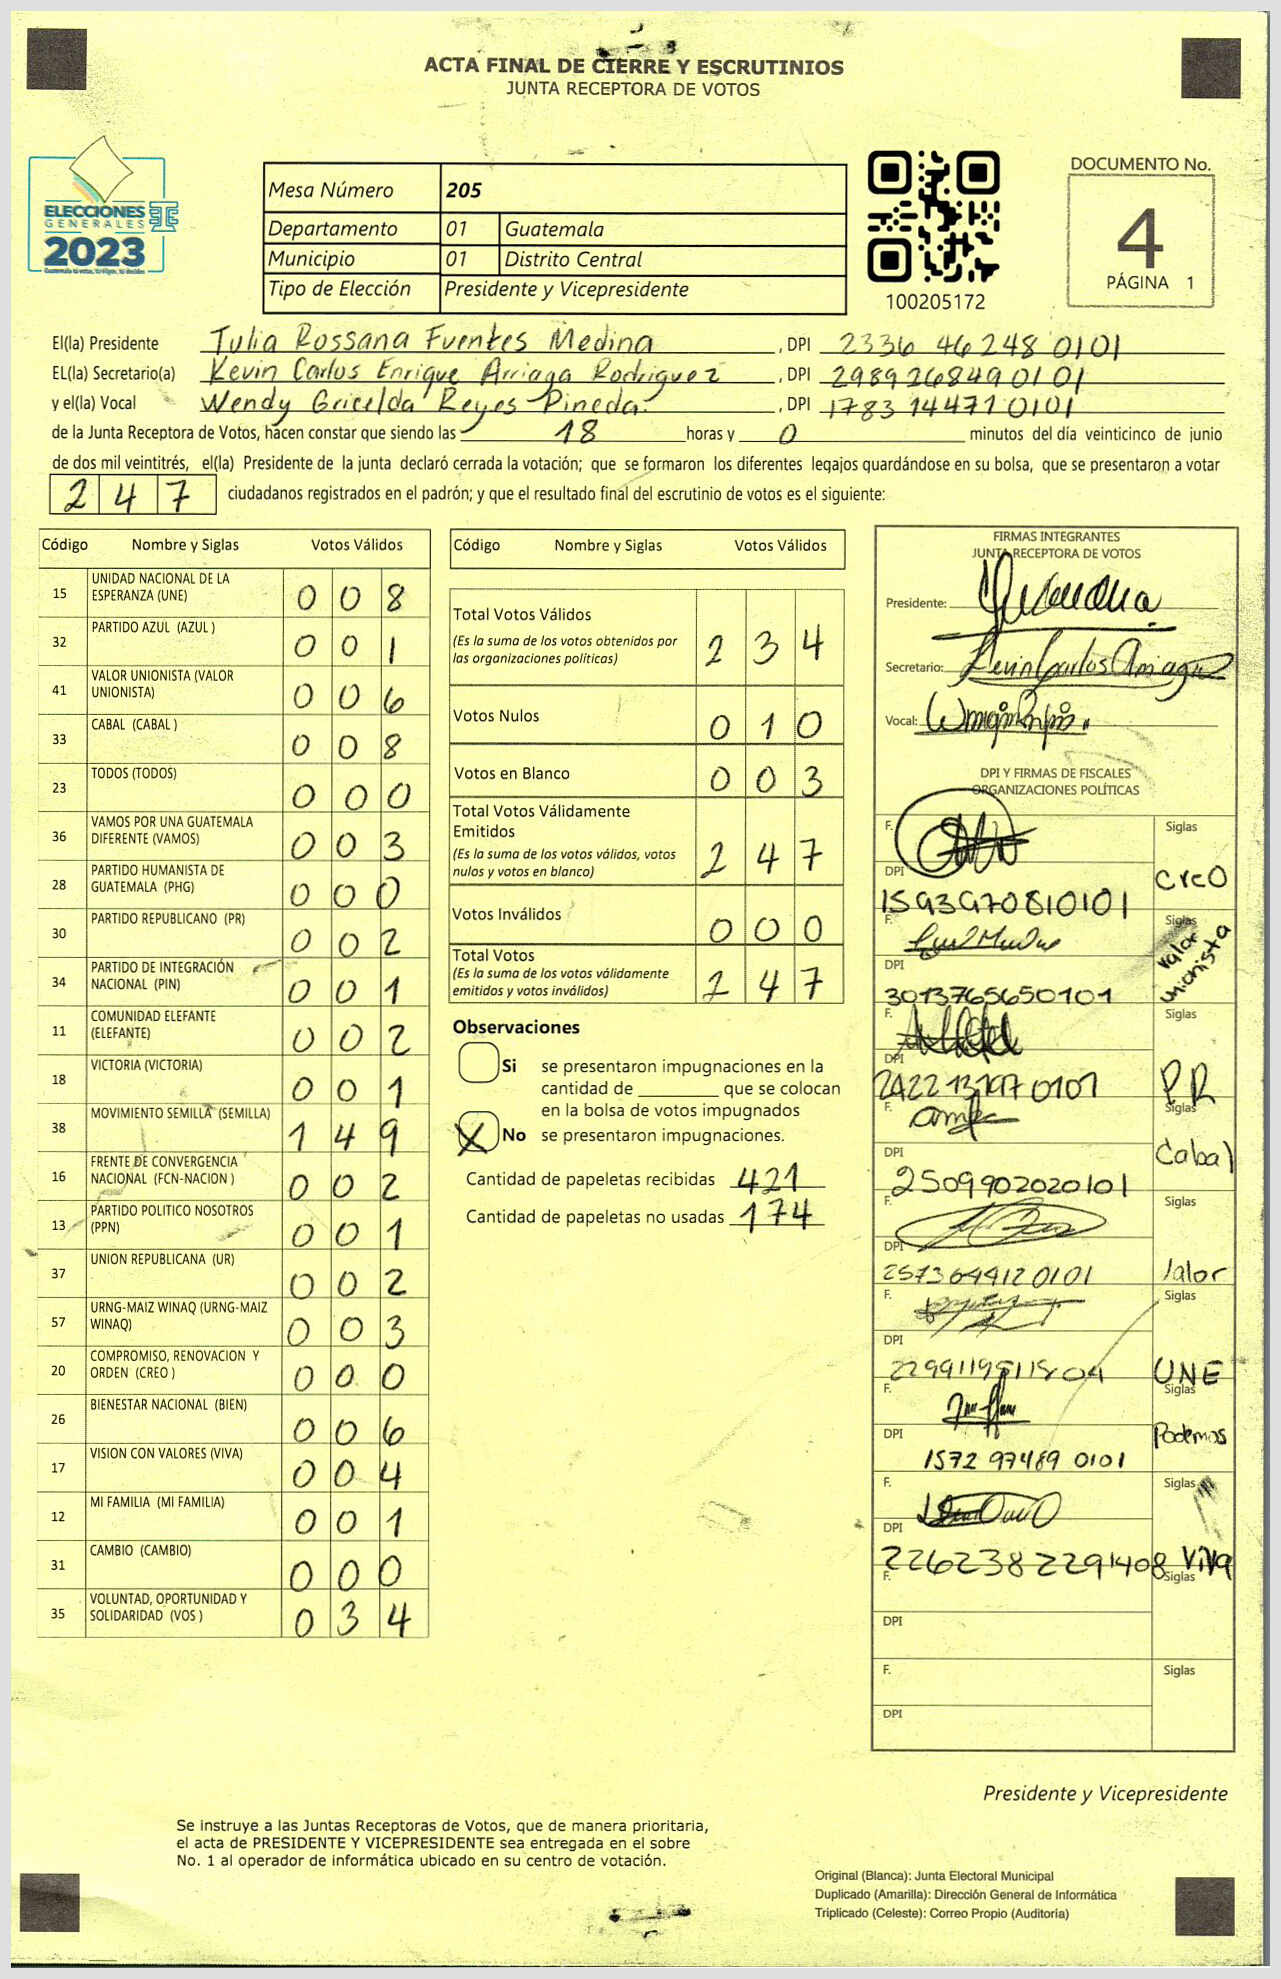 ACTA FINAL DE CIERRE Y ESCRUTINIOS
JUNTA RECEPTORA DE VOTOS
ELECCIONES
GENERALES
2023
Mesa Número 205
Departamento 01 Guatemala
Municipio 01 Distrito Central
Tipo de Elección Presidente y Vicepresidente
100205172
DOCUMENTO No.
4
PÁGINA 1
El(la) Presidente Julia Rossana Fuentes Medina , DPI 2336 46248 0101
EL(la) Secretario(a) Kevin Carlos Enrique Arriaga Rodriguez , DPI 2989268490101
y el(la) Vocal Wendy Gricelda Reyes Pineda. , DPI 1783 14471 0101
de la Junta Receptora de Votos, hacen constar que siendo las 18 horas y 0 minutos del día veinticinco de junio
de dos mil veintitrés, el(la) Presidente de la junta declaró cerrada la votación; que se formaron los diferentes legajos guardándose en su bolsa, que se presentaron a votar
247 ciudadanos registrados en el padrón; y que el resultado final del escrutinio de votos es el siguiente:
Código Nombre y Siglas Votos Válidos
15 UNIDAD NACIONAL DE LA ESPERANZA (UNE) 0 0 8
32 PARTIDO AZUL (AZUL ) 0 0 1
41 VALOR UNIONISTA (VALOR UNIONISTA) 0 0 6
33 CABAL (CABAL ) 0 0 8
23 TODOS (TODOS) 0 0 0
36 VAMOS POR UNA GUATEMALA DIFERENTE (VAMOS) 0 0 3
28 PARTIDO HUMANISTA DE GUATEMALA (PHG) 0 0 0
30 PARTIDO REPUBLICANO (PR) 0 0 2
34 PARTIDO DE INTEGRACIÓN NACIONAL (PIN) 0 0 1
11 COMUNIDAD ELEFANTE (ELEFANTE) 0 0 2
18 VICTORIA (VICTORIA) 0 0 1
38 MOVIMIENTO SEMILLA (SEMILLA) 1 4 9
16 FRENTE DE CONVERGENCIA NACIONAL (FCN-NACION ) 0 0 2
13 PARTIDO POLITICO NOSOTROS (PPN) 0 0 1
37 UNION REPUBLICANA (UR) 0 0 2
57 URNG-MAIZ WINAQ (URNG-MAIZ WINAQ) 0 0 3
20 COMPROMISO, RENOVACION Y ORDEN (CREO ) 0 0 0
26 BIENESTAR NACIONAL (BIEN) 0 0 6
17 VISION CON VALORES (VIVA) 0 0 4
12 MI FAMILIA (MI FAMILIA) 0 0 1
31 CAMBIO (CAMBIO) 0 0 0
35 VOLUNTAD, OPORTUNIDAD Y SOLIDARIDAD (VOS ) 0 3 4
Código Nombre y Siglas Votos Válidos
Total Votos Válidos 2 3 4
(Es la suma de los votos obtenidos por
las organizaciones políticas)
Votos Nulos 0 1 0
Votos en Blanco 0 0 3
Total Votos Válidamente
Emitidos 2 4 7
(Es la suma de los votos válidos, votos
nulos y votos en blanco)
Votos Inválidos 0 0 0
Total Votos 2 4 7
(Es la suma de los votos válidamente
emitidos y votos inválidos)
Observaciones
Si se presentaron impugnaciones en la
cantidad de ________ que se colocan
en la bolsa de votos impugnados
X No se presentaron impugnaciones.
Cantidad de papeletas recibidas 421
Cantidad de papeletas no usadas 174
FIRMAS INTEGRANTES
JUNTA RECEPTORA DE VOTOS
Presidente:
Secretario: Kevin Carlos Arriaga
Vocal:
DPI Y FIRMAS DE FISCALES
ORGANIZACIONES POLÍTICAS
F. Siglas
DPI 1593970810101 CREO
F. Siglas
DPI 3013765650101 Valor Unionista
F. Siglas
DPI PR
F. Siglas
DPI 2509902020101 Cabal
F. Siglas
DPI 2573644120101 Valor
F. Siglas
DPI UNE
F. Siglas
DPI 1572 97489 0101 Podemos
F. Siglas
DPI 2262382291408 VIVA
F. Siglas
DPI
F. Siglas
DPI
Presidente y Vicepresidente
Se instruye a las Juntas Receptoras de Votos, que de manera prioritaria,
el acta de PRESIDENTE Y VICEPRESIDENTE sea entregada en el sobre
No. 1 al operador de informática ubicado en su centro de votación.
Original (Blanca): Junta Electoral Municipal
Duplicado (Amarilla): Dirección General de Informática
Triplicado (Celeste): Correo Propio (Auditoría)